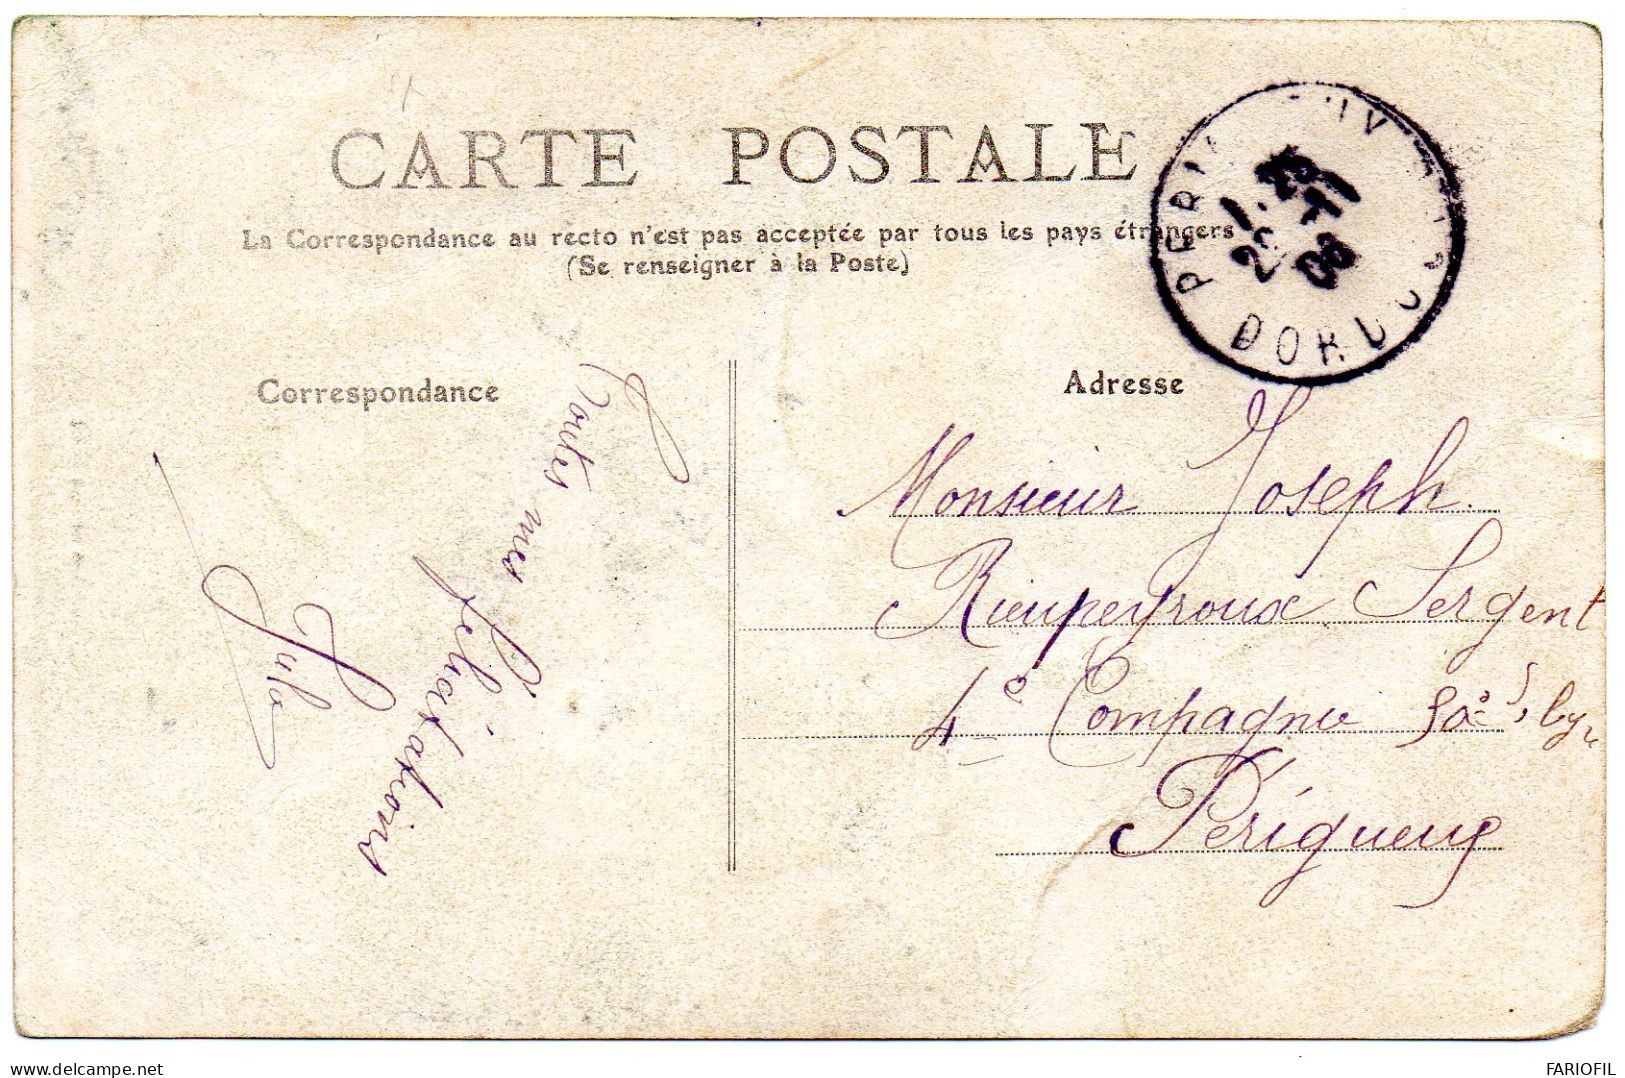 CARTE POSTALE
La Correspondance au recto n'est pas acceptée par tous les pays étrangers
(Se renseigner à la Poste)
1.25
-11
08
DORDOG
Correspondance
Toutes mes
félicitations
Adresse
Monsieur Joseph
Rieupeyroux Sergent
4e Compagnie 50e
Périgueux
delcampe.net
FARIOFIL